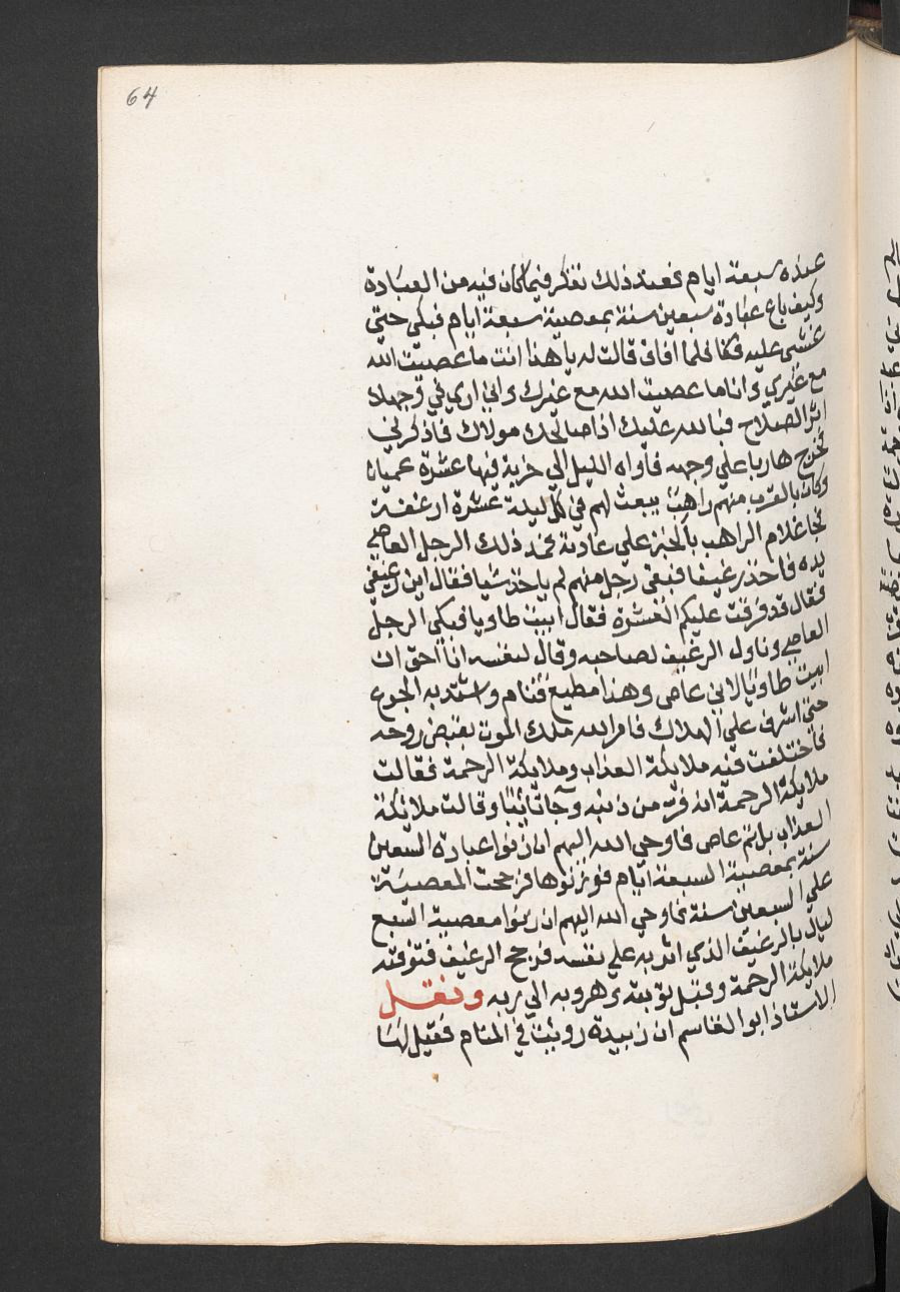 64
عنده سبعة ايام فعند ذلك تفكر فيما كان فيه من العبادة
وكيف باع عبادة سبعين سنة بمعصية سبعة ايام فبكى حتي
غشي عليه فلما افاق قالت له يا هذا انت ما عصيت الله
مع غيري وانا ما عصيت الله مع غيرك واني اري في وجهك
اثر الصلاح فبالله عليك اذا صالحك مولاك فاذكرني
فخرج هاربا علي وجهه فاواه الليل الي خربة فيها عشرة عميان
وكان بالقرب منهم راهب يبعث لهم في كل ليلة عشرة ارغفة
فجا غلام الراهب بالخبز علي عادته فمد ذلك الرجل العاصي
يده فاخذ رغيفا فبقي رجل منهم لم ياخذ شيا فقال اين رغيفي
فقال قد فرقت عليكم العشرة فقال ابيت طاويا فبكي الرجل
العاصي وناول الرغيف لصاحبه وقال لنفسه انا احق ان
ابيت طاويا لاني عاصي وهذا مطيع فنام واشتد به الجوع
حتي اشرف علي الهلاك فامر الله ملك الموت بقبض روحه
فاختلفت فيه ملايكة العذاب وملايكة الرحمة فقالت
ملايكة الرحمة انه فر من ذنبه وجا تائبا وقالت ملائكة
العذاب بل هو عاص فاوحي الله اليهم ان زنوا عبادة السبعين
سنة بمعصية السبعة ايام فوزنوها فرجحت المعصية
علي السبعين سنة فاوحي الله اليهم ان زنوا معصية السبع
ليال بالرغيف الذي اثر به علي نفسه فرجح الرغيف فتوفته
ملايكة الرحمة وقبل توبته وهروبه الي ربه ونقل
الاستاذ ابو القاسم ان زبيدة روئيت في المنام فقيل لها